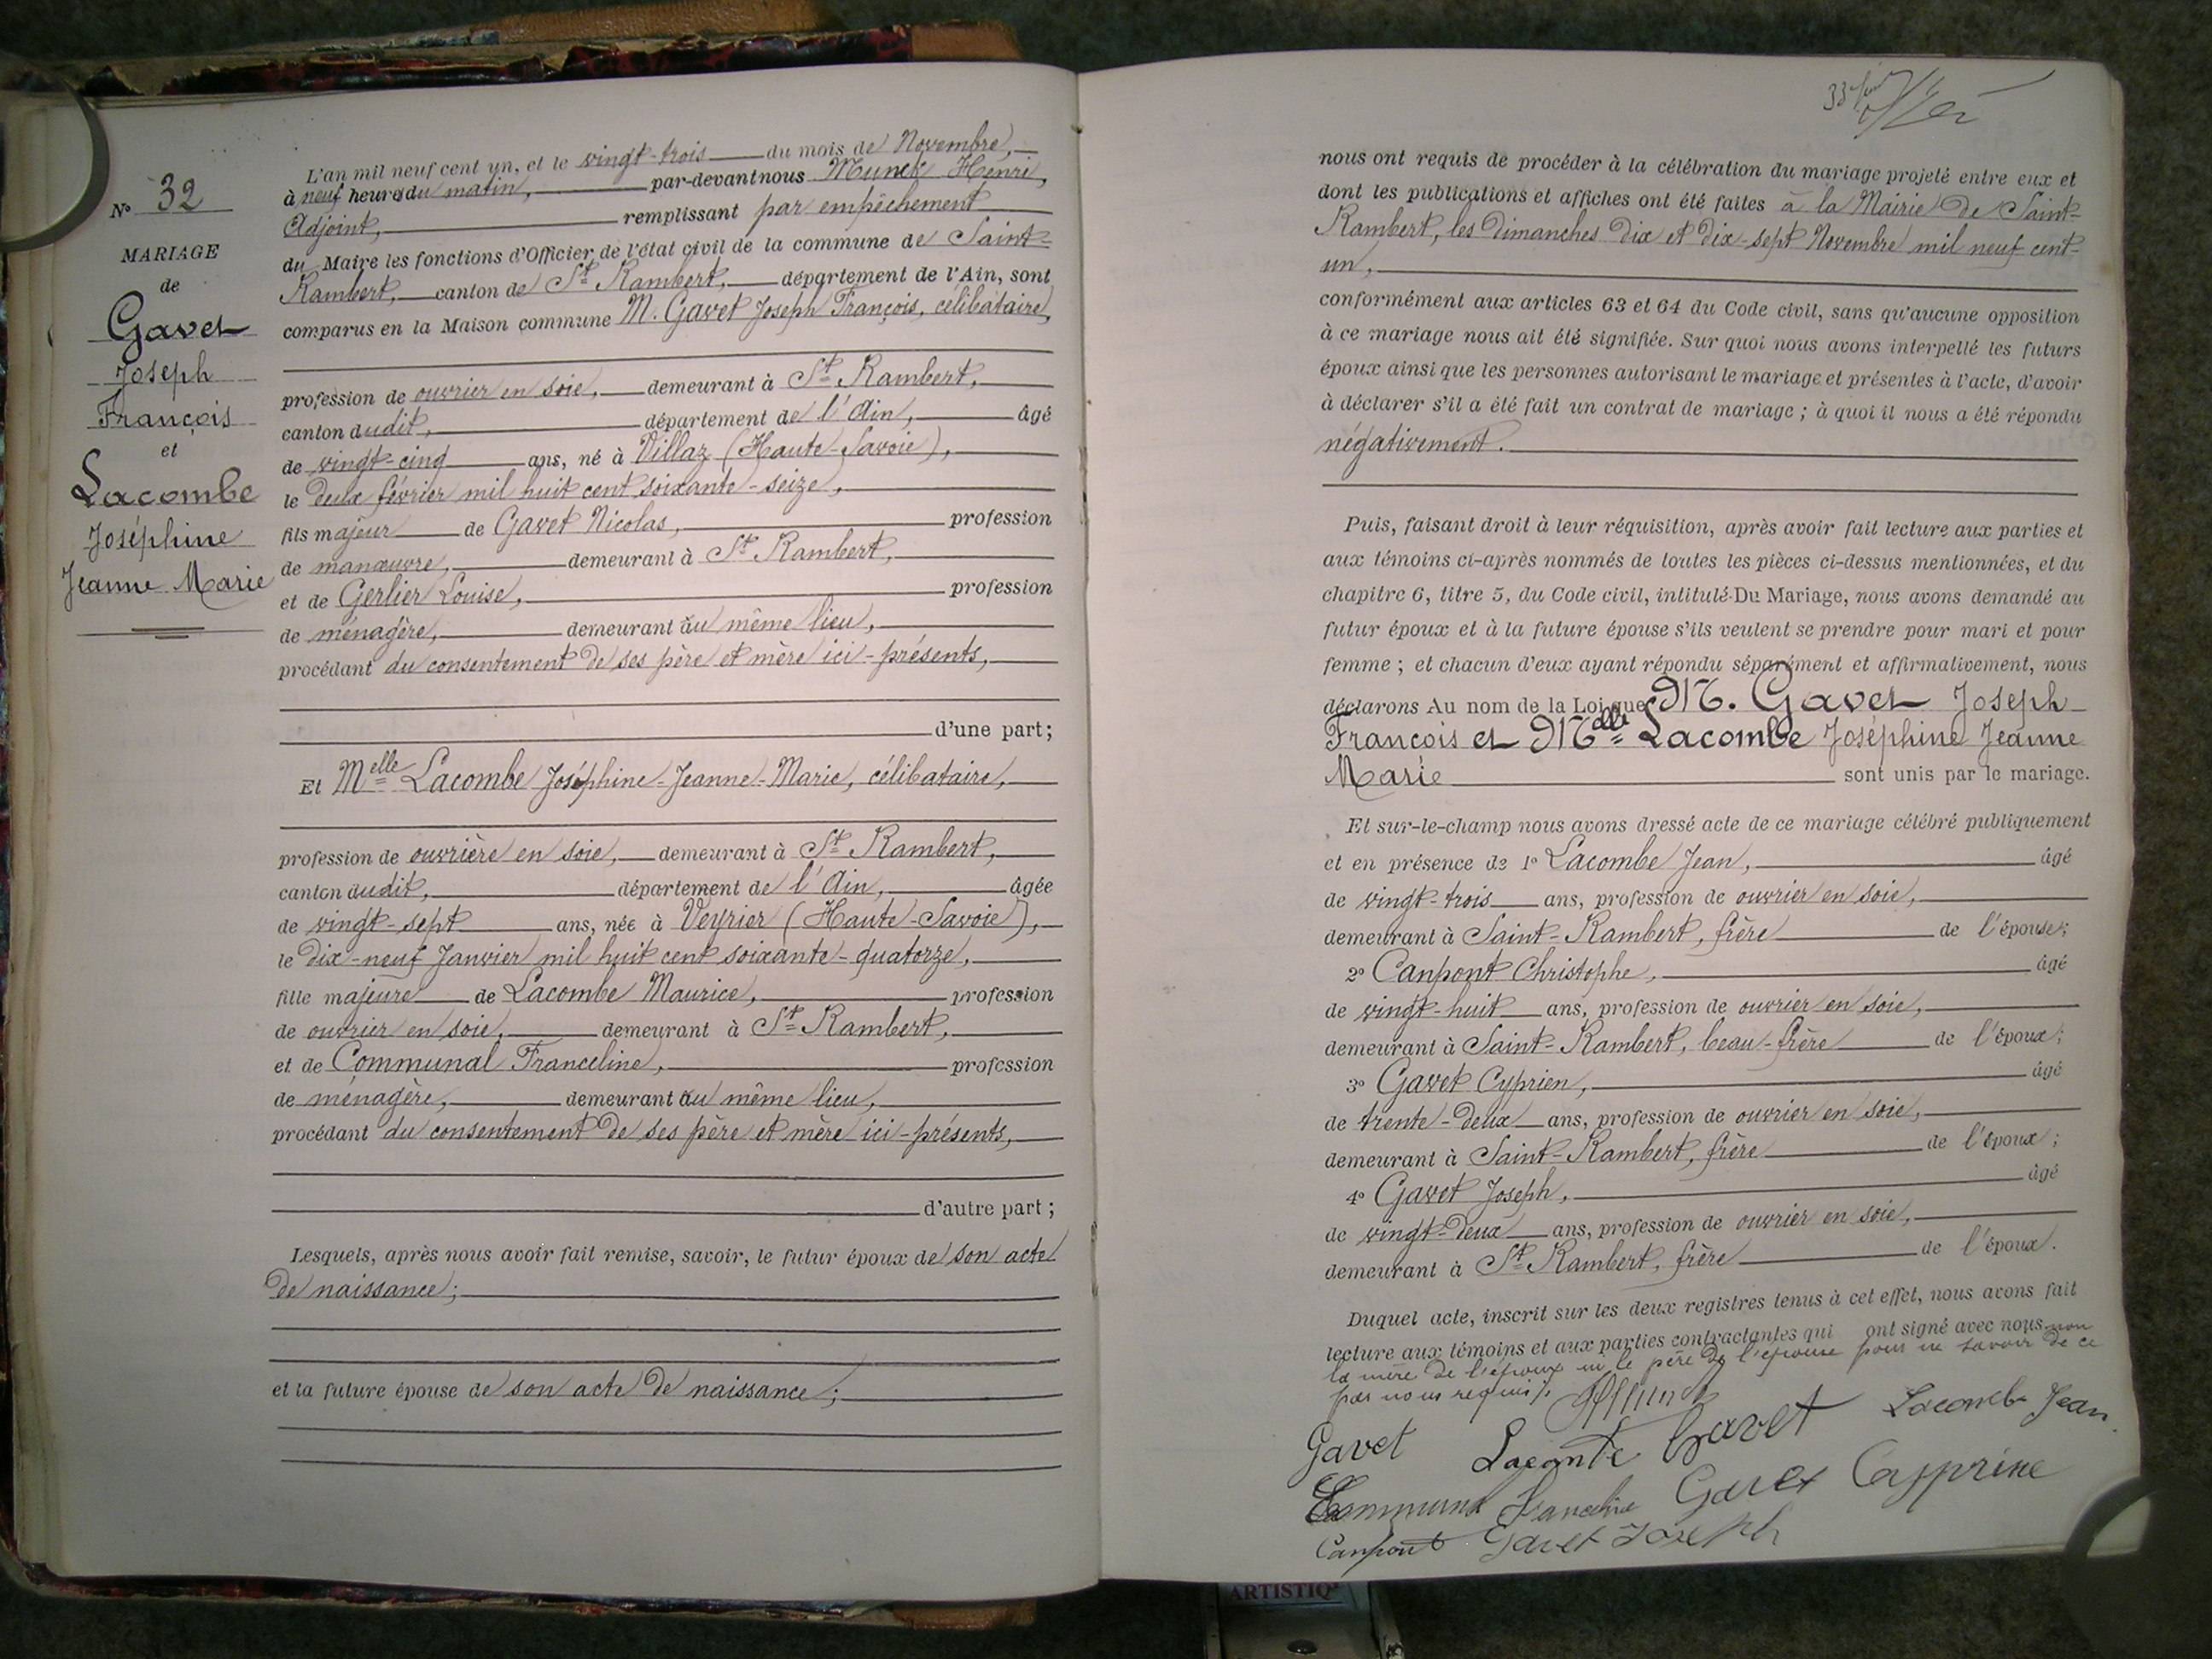 N° 32
MARIAGE
de
Gavet
Joseph
François
et
Lacombe
Joséphine
Jeanne Marie
L'an mil neuf cent un, et le vingt-trois du mois de Novembre,
à neuf heures du matin, par-devant nous Munck Henri,
Adjoint, remplissant par empêchement
du Maire les fonctions d'Officier de l'état civil de la commune de Saint-
Rambert, canton de St Rambert, département de l'Ain, sont
comparus en la Maison commune M. Gavet Joseph François, célibataire,
profession de ouvrier en soie, demeurant à St Rambert,
canton dudit, département de l'Ain, âgé
de vingt-cinq ans, né à Villaz (Haute-Savoie),
le deux février mil huit cent soixante-seize,
fils majeur de Gavet Nicolas, profession
de manœuvre, demeurant à St Rambert,
et de Gerlier Louise, profession
de ménagère, demeurant au même lieu,
procédant du consentement de ses père et mère ici-présents,
d'une part;
Et Melle Lacombe Joséphine-Jeanne-Marie, célibataire,
profession de ouvrière en soie, demeurant à St Rambert,
canton dudit, département de l'Ain, âgée
de vingt-sept ans, née à Veyrier (Haute-Savoie),
le dix-neuf Janvier mil huit cent soixante-quatorze,
fille majeure de Lacombe Maurice, profession
de ouvrier en soie, demeurant à St Rambert,
et de Communal Franceline, profession
de ménagère, demeurant au même lieu,
procédant du consentement de ses père et mère ici-présents,
d'autre part;
Lesquels, après nous avoir fait remise, savoir, le futur époux de son acte
de naissance;
et la future épouse de son acte de naissance;
nous ont requis de procéder à la célébration du mariage projeté entre eux et
dont les publications et affiches ont été faites à la Mairie de Saint-
Rambert, les dimanches dix et dix-sept Novembre mil neuf cent-
un,
conformément aux articles 63 et 64 du Code civil, sans qu'aucune opposition
à ce mariage nous ait été signifiée. Sur quoi nous avons interpellé les futurs
époux ainsi que les personnes autorisant le mariage et présentes à l'acte, d'avoir
à déclarer s'il a été fait un contrat de mariage; à quoi il nous a été répondu
négativement.
Puis, faisant droit à leur réquisition, après avoir fait lecture aux parties et
aux témoins ci-après nommés de toutes les pièces ci-dessus mentionnées, et du
chapitre 6, titre 5, du Code civil, intitulé Du Mariage, nous avons demandé au
futur époux et à la future épouse s'ils veulent se prendre pour mari et pour
femme; et chacun d'eux ayant répondu séparément et affirmativement, nous
déclarons Au nom de la Loi que M. Gavet Joseph
François et Melle Lacombe Joséphine Jeanne
Marie sont unis par le mariage.
Et sur-le-champ nous avons dressé acte de ce mariage célébré publiquement
et en présence de 1° Lacombe Jean, âgé
de vingt-trois ans, profession de ouvrier en soie,
demeurant à Saint-Rambert, frère de l'épouse;
2° Canpont Christophe, âgé
de vingt-huit ans, profession de ouvrier en soie,
demeurant à Saint-Rambert, beau-frère de l'époux;
3° Gavet Cyprien, âgé
de trente-deux ans, profession de ouvrier en soie,
demeurant à Saint-Rambert, frère de l'époux;
4° Gavet Joseph, âgé
de vingt-deux ans, profession de ouvrier en soie,
demeurant à St Rambert, frère de l'époux.
Duquel acte, inscrit sur les deux registres tenus à cet effet, nous avons fait
lecture aux témoins et aux parties contractantes qui ont signé avec nous non
la mère de l'époux ni le père de l'épouse pour ne savoir de ce
par nous requis.
HMunck
Gavet Lacombe Gavet Lacombe Jean
Communal Franceline Gavet Cypprine
Canpont Gavet Joseph
ARTISTIQ